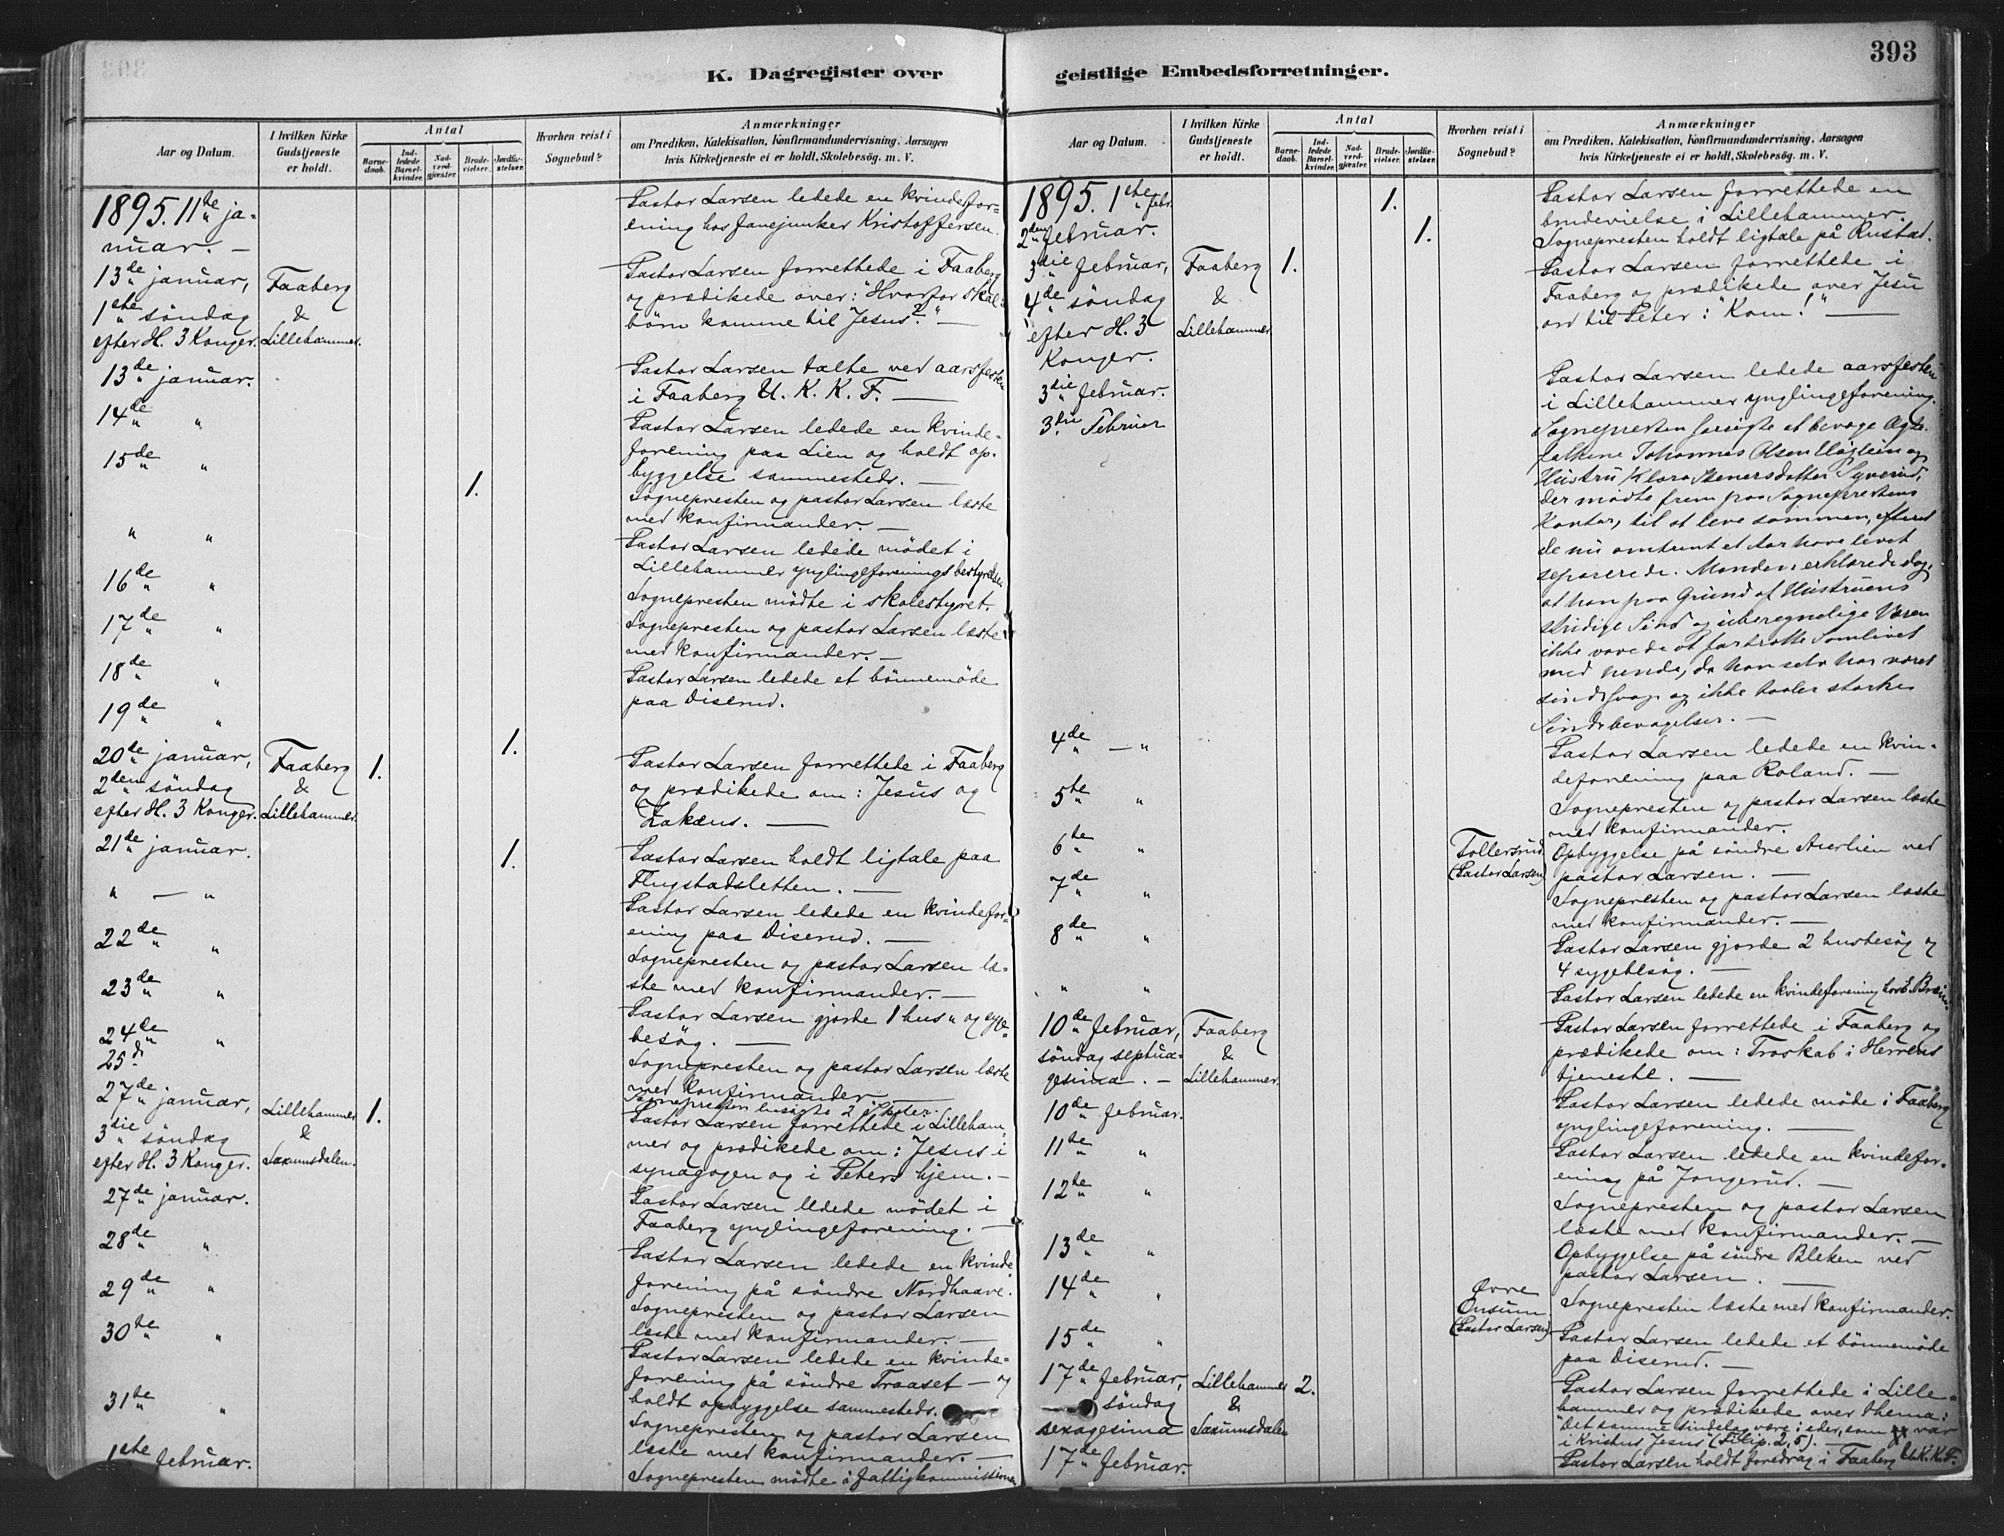 393
K. Dagregister over
geistlige Embedsforretninger.
Aar og Datum.
I hvilken Kirke
Gudstjeneste
er holdt.
Antal
Barne-
daab.
Ind-
ledede
Barsel-
kvinder.
Nad-
verd-
gjæster.
Brude-
vielser.
Jordfæ-
stelser.
Hvorhen reist i
Sognebud?
Anmærkninger
om Prædiken, Katekisation, Konfirmandundervisning, Aarsagen
hvis Kirketjeneste ei er holdt, Skolebesøg. m. V.
1895. 11te ja-
nuar. —
Pastor Larsen ledede en kvindefor-
ening hos fanejunker Kristoffersen.
13de januar,
1ste søndag
efter H. 3 Konger.
Faaberg
&
Lillehammer.
Pastor Larsen forrettede i Faaberg
og prædikede over: "Hvorfor skal
børn komme til Jesus?" —
13de januar.
Pastor Larsen talte ved aarsfesten
i Faaberg U. K. K. F. —
14de "
Pastor Larsen ledede en kvinde-
forening paa Lien og holdt op-
byggelse sammesteds. —
15de "
1.
Sognepresten og pastor Larsen læste
med konfirmander. —
" "
Pastor Larsen ledede mødet i
Lillehammer ynglingeforenings bestyrelse.
16de "
Sognepresten mødte i skolestyret.
17de "
Sognepresten og pastor Larsen læste
med konfirmander. —
18de "
Pastor Larsen ledede et bønnemøde
paa Diserud.
19de "
1.
20de januar,
2den søndag
efter H. 3 Konger.
Faaberg
&
Lillehammer.
1.
Pastor Larsen forrettede i Faaberg
og prædikede om: Jesus og
Zakæus. —
21de januar.
1.
Pastor Larsen holdt ligtale paa
Flugstadsletten. —
" — "
Pastor Larsen ledede en kvindefor-
ening paa Diserud. —
22de "
Sognepresten og pastor Larsen læ-
ste med konfirmander. —
23de "
Pastor Larsen gjorde 1 hus " og syge-
besøg. —
24de "
Sognepresten og pastor Larsen læste
med konfirmander. —
25d.
Sognepresten besøgte 2 Skoler.
27de januar,
3die søndag
efter H. 3 Konger.
Lillehammer
&
Saxumsdalen.
1.
Pastor Larsen forrettede i Lilleham
mer og prædikede om: Jesus i
synagogen og i Peters hjem. —
27de januar.
Pastor Larsen ledede mødet i
Faaberg ynglingeforening. —
28de "
Pastor Larsen ledede en kvinde
forening på søndre Nordhaave.
29de "
Sognepresten og pastor Larsen
læste med konfirmander. —
30te "
Pastor Larsen ledede en kvinde-
forening på søndre Traaset — og
holdt opbyggelse sammesteds.
31te "
Sognepresten og pastor Larsen
læste med konfirmander. —
1ste februar.
Sognepresten mødte i fattigkommissionen
Aar og Datum.
I hvilken Kirke
Gudstjeneste
er holdt.
Antal
Barne-
daab.
Ind-
ledede
Barsel-
kvinder.
Nad-
verd-
gjæster.
Brude-
vielser.
Jordfæ-
stelser.
Hvorhen reist i
Sognebud?
Anmærkninger
om Prædiken, Katekisation, Konfirmandundervisning, Aarsagen
hvis Kirketjeneste ei er holdt, Skolebesøg. m. V.
1895. 1ste febr.
1.
Pastor Larsen forrettede en
brudevielse i Lillehammer.
2den februar.
1.
Sognepresten holdt ligtale på Rustad.
3die februar,
4de søndag
efter H. 3
Konger.
Faaberg
&
Lillehammer.
1.
Pastor Larsen forrettede i
Faaberg og prædikede over Jesu
ord til Peter: "Kom!" —
3die februar.
Pastor Larsen ledede aarsfesten
i Lillehammer ynglingeforening.
3die Februar
Sognepresten forsøgte at bevæge Ægte-
folkene Johannes Olsen og
Hustru Klara Stenersdatter Syverud,
der mødte frem paa Sogneprestens
Kontor, til at leve sammen, efterat
de nu omtrent et Aar have levet
separerede. Manden erklærede dog,
at han paa Grund af Hustruens
stridige Sind og uberegnelige Væsen
ikke vovede at fortsætte Samlivet
med hende, da han selv har været
sindssvag og ikke taaler stærke
Sindsbevægelser. —
4de — "
Pastor Larsen ledede en kvin-
deforening paa Roland. —
5te "
Sognepresten og pastor Larsen læste
med konfirmander.
6te "
Tollersrud
(Pastor Larsen)
Opbyggelse på søndre Aurlien ved
pastor Larsen. —
7de "
Sognepresten og pastor Larsen læste
med konfirmander. —
8de "
Pastor Larsen gjorde 2 husbesøg og
4 sygebesøg. —
" "
Pastor Larsen ledede en kvindeforening hos
10de februar,
søndag septua-
gesima. —
Faaberg
&
Lillehammer.
Pastor Larsen forrettede i Faaberg og
prædikede om: Troskab i Herrens
tjeneste. —
10de februar.
Pastor Larsen ledede møde i Faaberg
ynglingeforening. —
11te "
Pastor Larsen ledede en kvindefor-
ening på Jongerud. —
12te "
Sognepresten og pastor Larsen
læste med konfirmander. —
13de "
Opbyggelse på søndre Bleken ved
pastor Larsen. —
14de "
Øvre
Onsum
(Pastor Larsen)
Sognepresten læste med konfirmander.
15de "
Pastor Larsen ledede et bønnemøde
paa Diserud. —
17de februar,
søndag
sexagesima
Lillehammer
&
Saxumsdalen
2.
Pastor Larsen forrettede i Lille-
hammer og prædikede over thema:
"Det samme sindelag være i eder, som var
i Kristus Jesus" (Filip. 2, 5). —
17de februar.
Pastor Larsen holdt foredrag i Faaberg U.K.K.F.